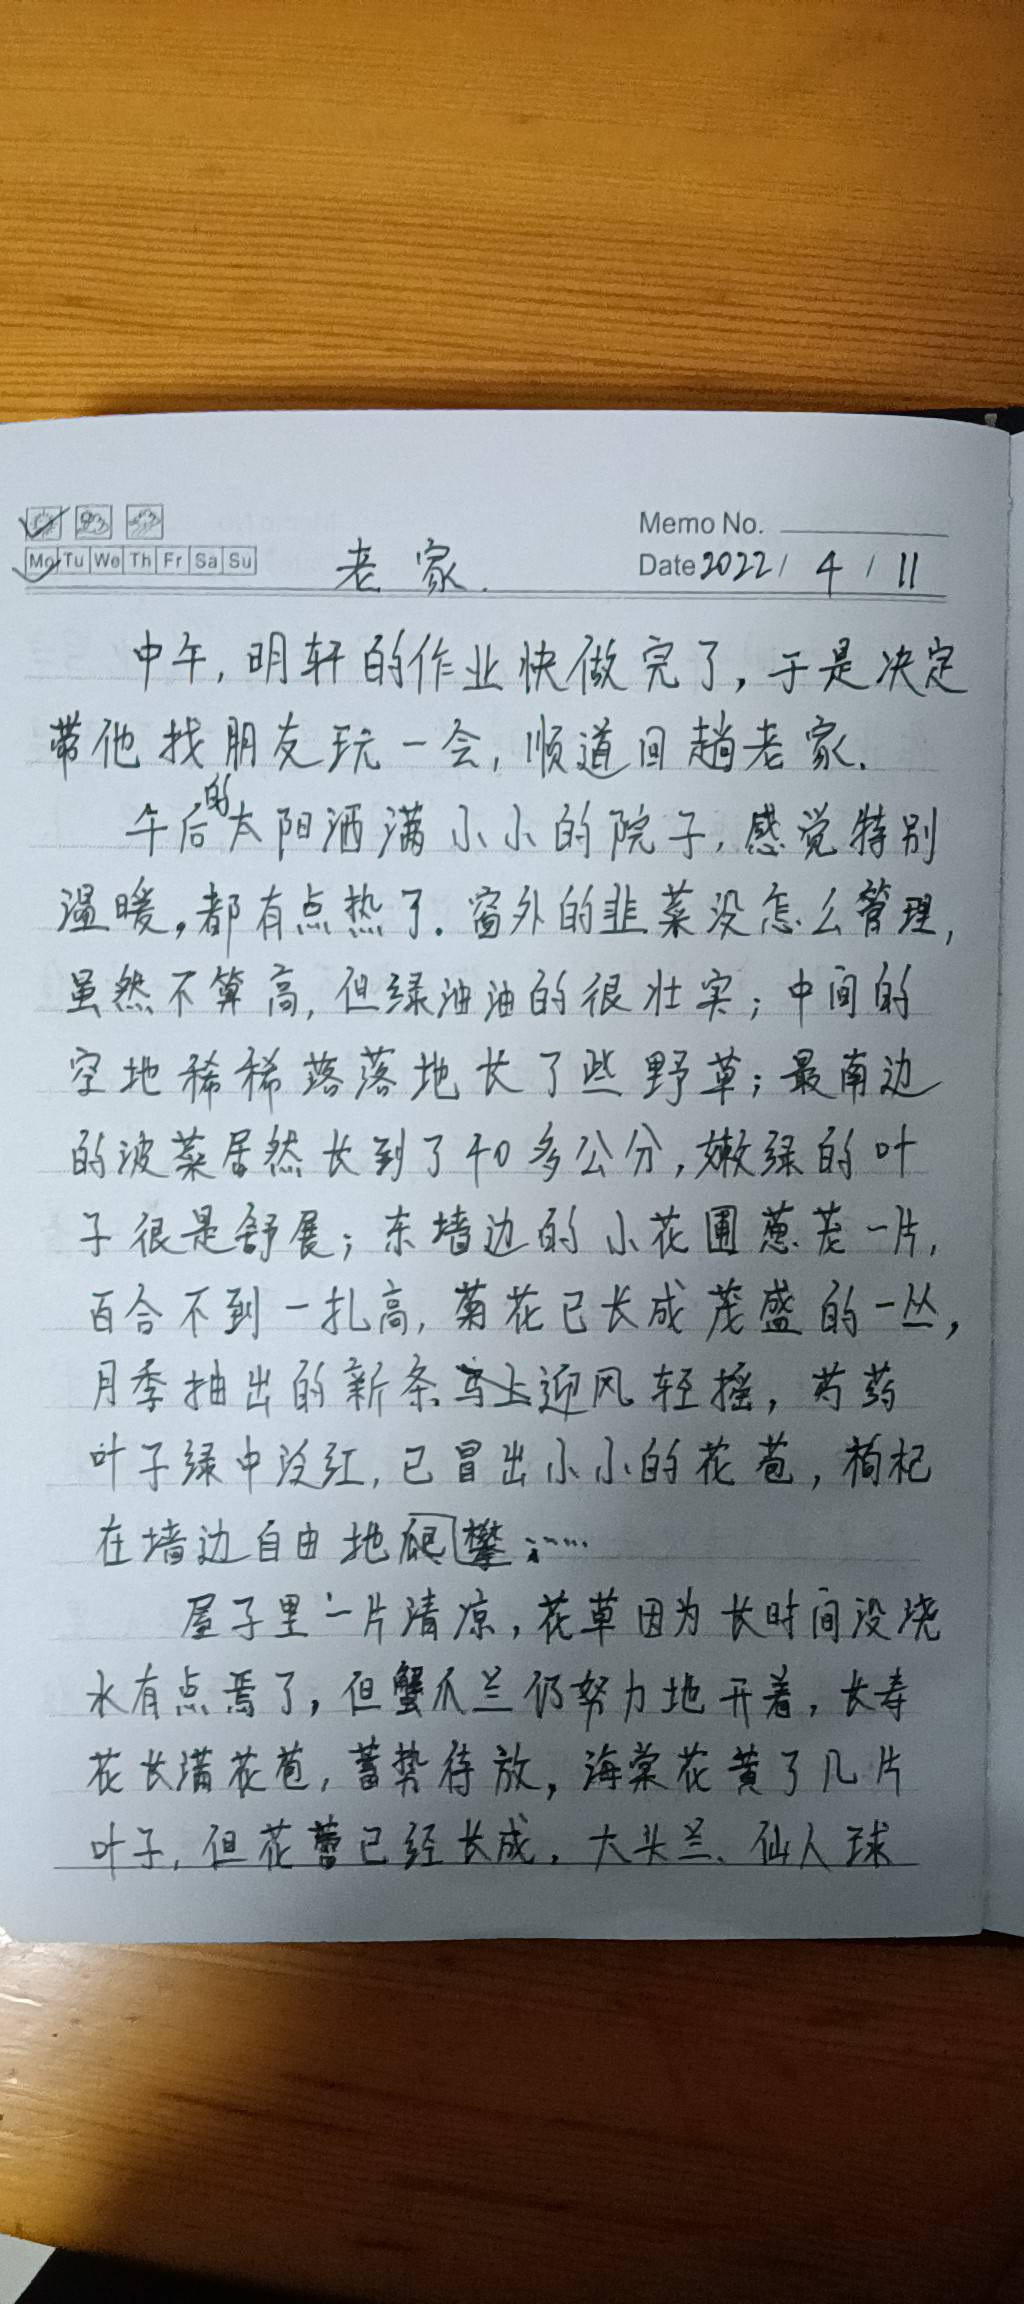 Memo No.
Mo Tu We Th Fr Sa Su
老家.
Date 2022 / 4 / 11
中午,明轩的作业快做完了,于是决定
带他找朋友玩一会,顺道回趟老家.
午后的太阳洒满小小的院子,感觉特别
温暖,都有点热了.窗外的韭菜没怎么管理,
虽然不算高,但绿油油的很壮实;中间的
空地稀稀落落地长了些野草;最南边
的波菜居然长到了40多公分,嫩绿的叶
子很是舒展;东墙边的小花圃葱茏一片,
百合不到一扎高,菊花已长成茂盛的一丛,
月季抽出的新条迎风轻摇,芍药
叶子绿中泛红,已冒出小小的花苞,枸杞
在墙边自由地攀……
屋子里一片清凉,花草因为长时间没浇
水有点蔫了,但蟹爪兰仍努力地开着,长寿
花长满花苞,蓄势待放,海棠花黄了几片
叶子,但花蕾已经长成,大头兰、仙人球